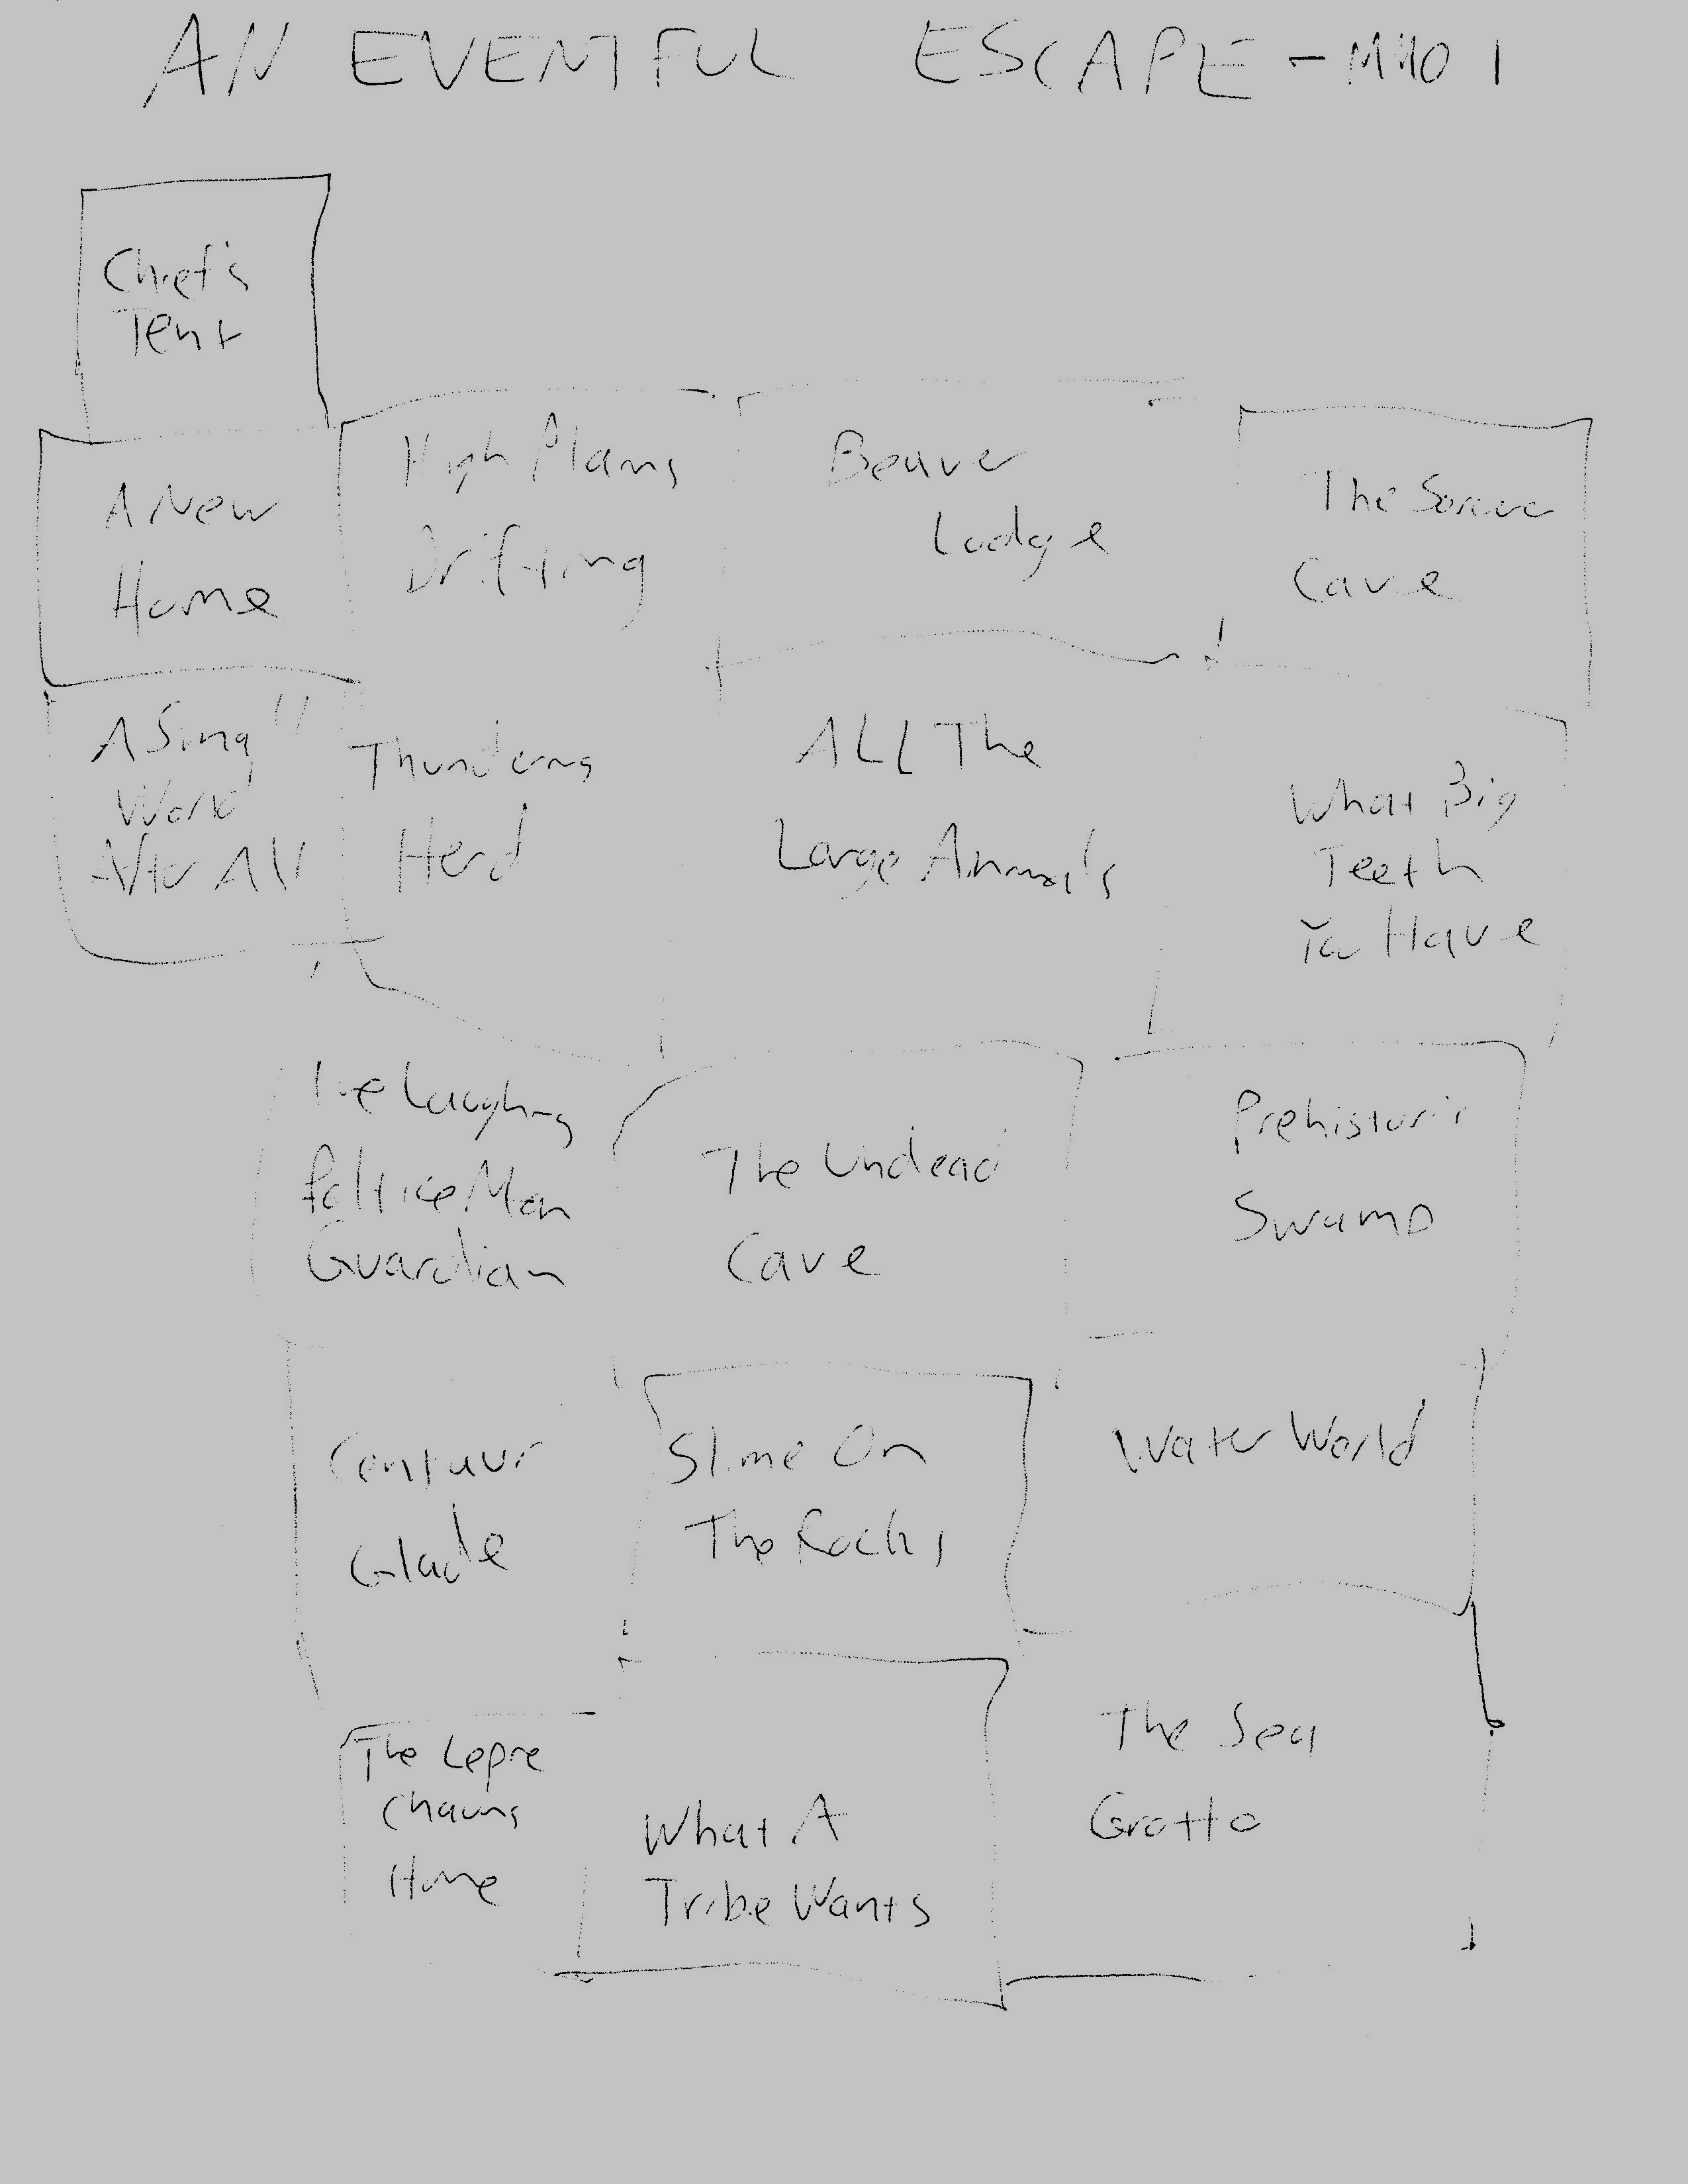 AN EVENTFUL ESCAPE - MM01
Chief's
Tent
A New
Home
High Plains
Drifting
Beaver
Lodge
The
Cave
A Small
World
After All
Thundering
Herd
ALL The
Large Animals
What Big
Teeth
You Have
The Laughing
Man
Guardian
The Undead
Cave
Prehistoric
Swamp
Centaur
Glade
Slime On
The Rocks
Water World
The Lepre
Chauns
Home
What A
Tribe Wants
The Sea
Grotto